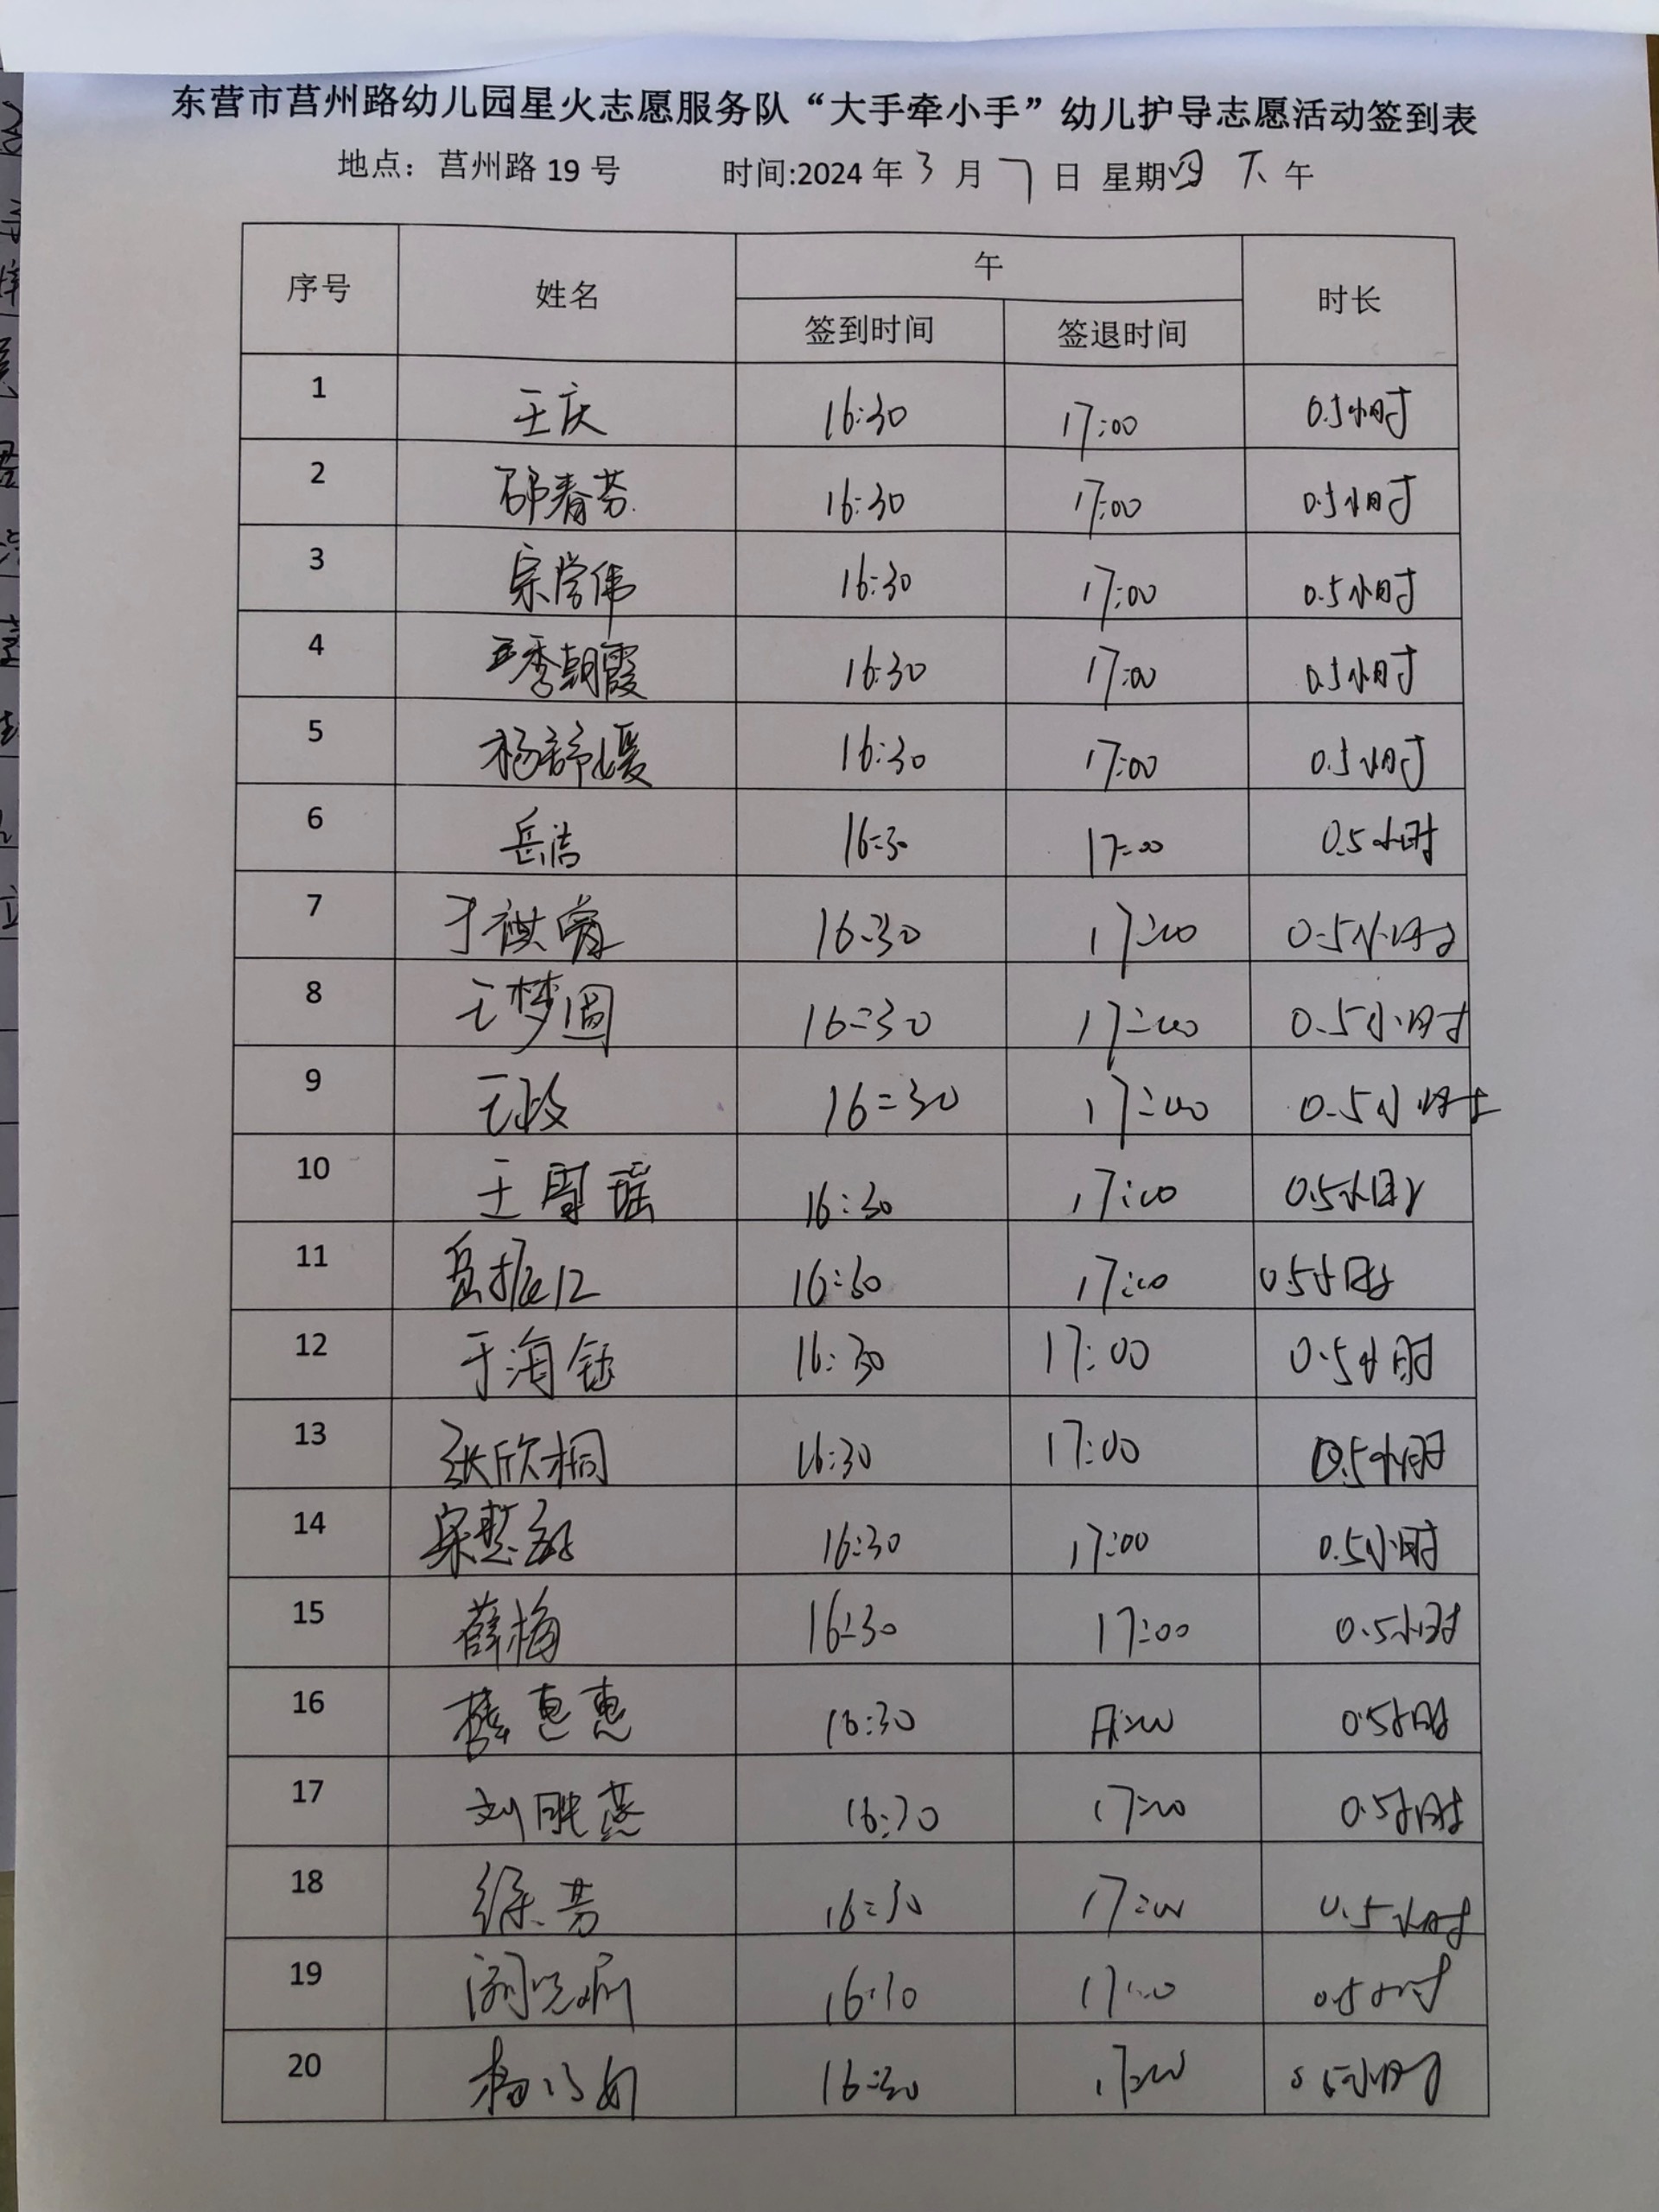 东营市莒州路幼儿园星火志愿服务队“大手牵小手”幼儿护导志愿活动签到表
地点：莒州路 19 号 时间:2024 年 3 月 7 日 星期四 下午
序号 姓名 午 时长
签到时间 签退时间
1 王庆 16:30 17:00 0.5小时
2 邵春芬 16:30 17:00 0.5小时
3 宗学伟 16:30 17:00 0.5小时
4 季朝霞 16:30 17:00 0.5小时
5 杨舒媛 16:30 17:00 0.5小时
6 岳洁 16:30 17:00 0.5小时
7 于祺 16:30 17:00 0.5小时
8 王梦圆 16:30 17:00 0.5小时
9 王政 16:30 17:00 0.5小时
10 王雪瑶 16:30 17:00 0.5小时
11 岳振江 16:30 17:00 0.5小时
12 于海钰 16:30 17:00 0.5小时
13 张欣桐 16:30 17:00 0.5小时
14 16:30 17:00 0.5小时
15 薛梅 16:30 17:00 0.5小时
16 惠惠 16:30 17:00 0.5小时
17 刘胜燕 16:30 17:00 0.5小时
18 徐芳 16:30 17:00 0.5小时
19 16:30 17:00 0.5小时
20 杨 16:30 17:00 0.5小时